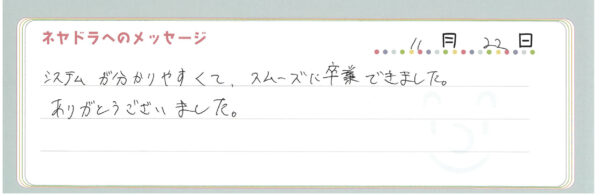 ネヤドラへのメッセージ
11月22日
システムが分かりやすくて、スムーズに卒業できました。
ありがとうございました。